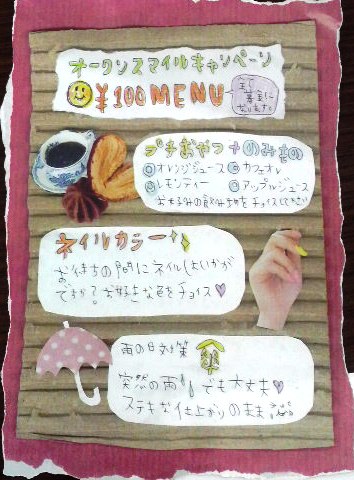 オークンスマイルキャンペーン
¥100MENU
全て
募金に
なります。
プチおやつ+のみもの
◎オレンジジュース ◎カフェオレ
◎レモンティー ◎アップルジュース
お好みの飲み物をチョイスしてください
ネイルカラー
お待ちの間にネイルはいかが
ですか？お好きな色をチョイス♡
雨の日対策 傘
突然の雨でも大丈夫♡
ステキな仕上がりのまま